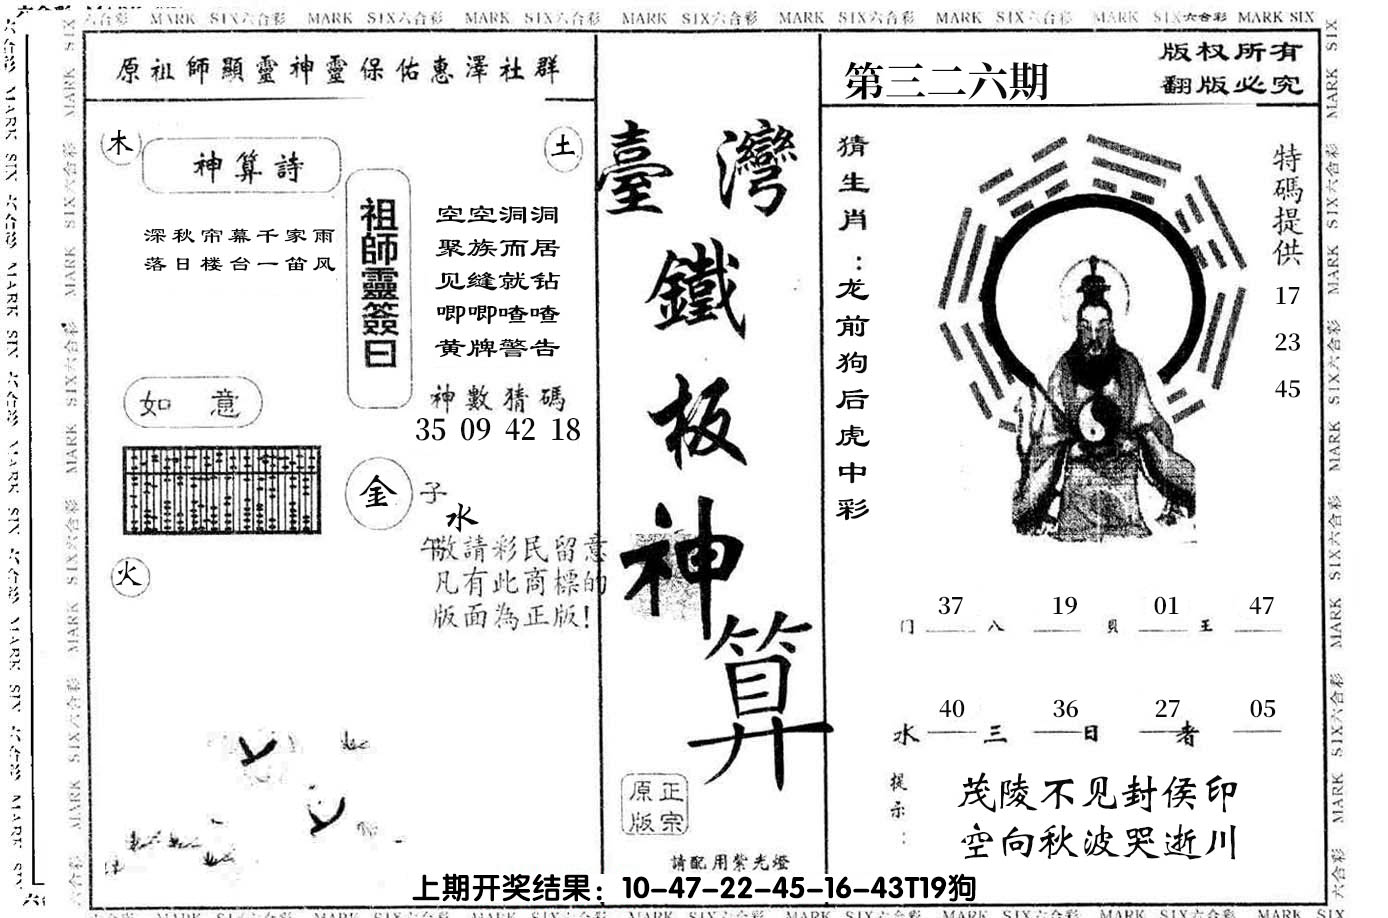 MARK SIX六合彩 MARK SIX六合彩 MARK SIX六合彩 MARK SIX六合彩 MARK SIX六合彩 MARK SIX六合彩 MARK SIX六合彩 MARK SIX
原祖師顯靈神靈保佑惠澤社群
木
土
神算詩
深秋帘幕千家雨
落日楼台一笛风
祖師靈簽曰
空空洞洞
聚族而居
见缝就钻
唧唧喳喳
黄牌警告
神數猜碼
35 09 42 18
如意
金
子
水
午
火
敬請彩民留意
凡有此商標的
版面為正版!
臺灣
鐵
板
神
算
正宗
原版
請配用紫光燈
第三二六期
版权所有
翻版必究
猜生肖:龙前狗后虎中彩
特碼提供
17
23
45
37 19 01 47
门 八 貝 王
40 36 27 05
水 三 日 者
提示:
茂陵不见封侯印
空向秋波哭逝川
上期开奖结果：10-47-22-45-16-43T19狗